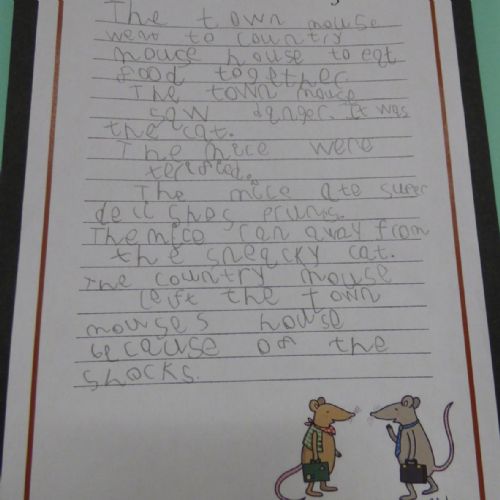 The town mouse
went to country
mouse house to eat
food together.
The town mouce
saw danger. It was
the cat.
The mice were
terrified.
The mice ate super
delishes prunis.
The mice ran away from
the sneacky cat.
The country mouse
left the town
mouses house
because of the
shocks.